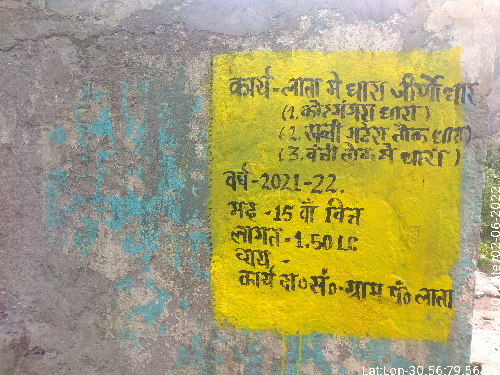 कार्य-लाता मे धारा जीर्णोधार
(1. कोटमंगरा धारा)
(2. सूची गदेरा तोक धारा)
(3. वंती तोक मे धारा)
वर्ष-2021-22.
मद -15 वाँ वित्त
लागत-1.50 LC
व्यय -
कार्य दा०सं०-ग्राम पं० लाता
Lat:Lon-30.56:79.56